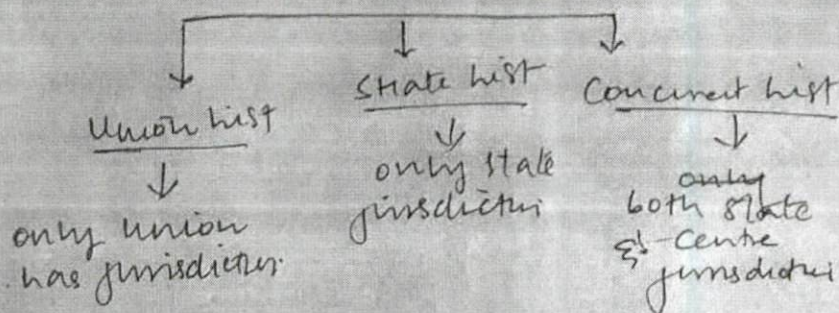 Union List
only union
has jurisdiction.
State List
only state
jurisdiction
Concurrent List
only
both state
& Centre
jurisdiction